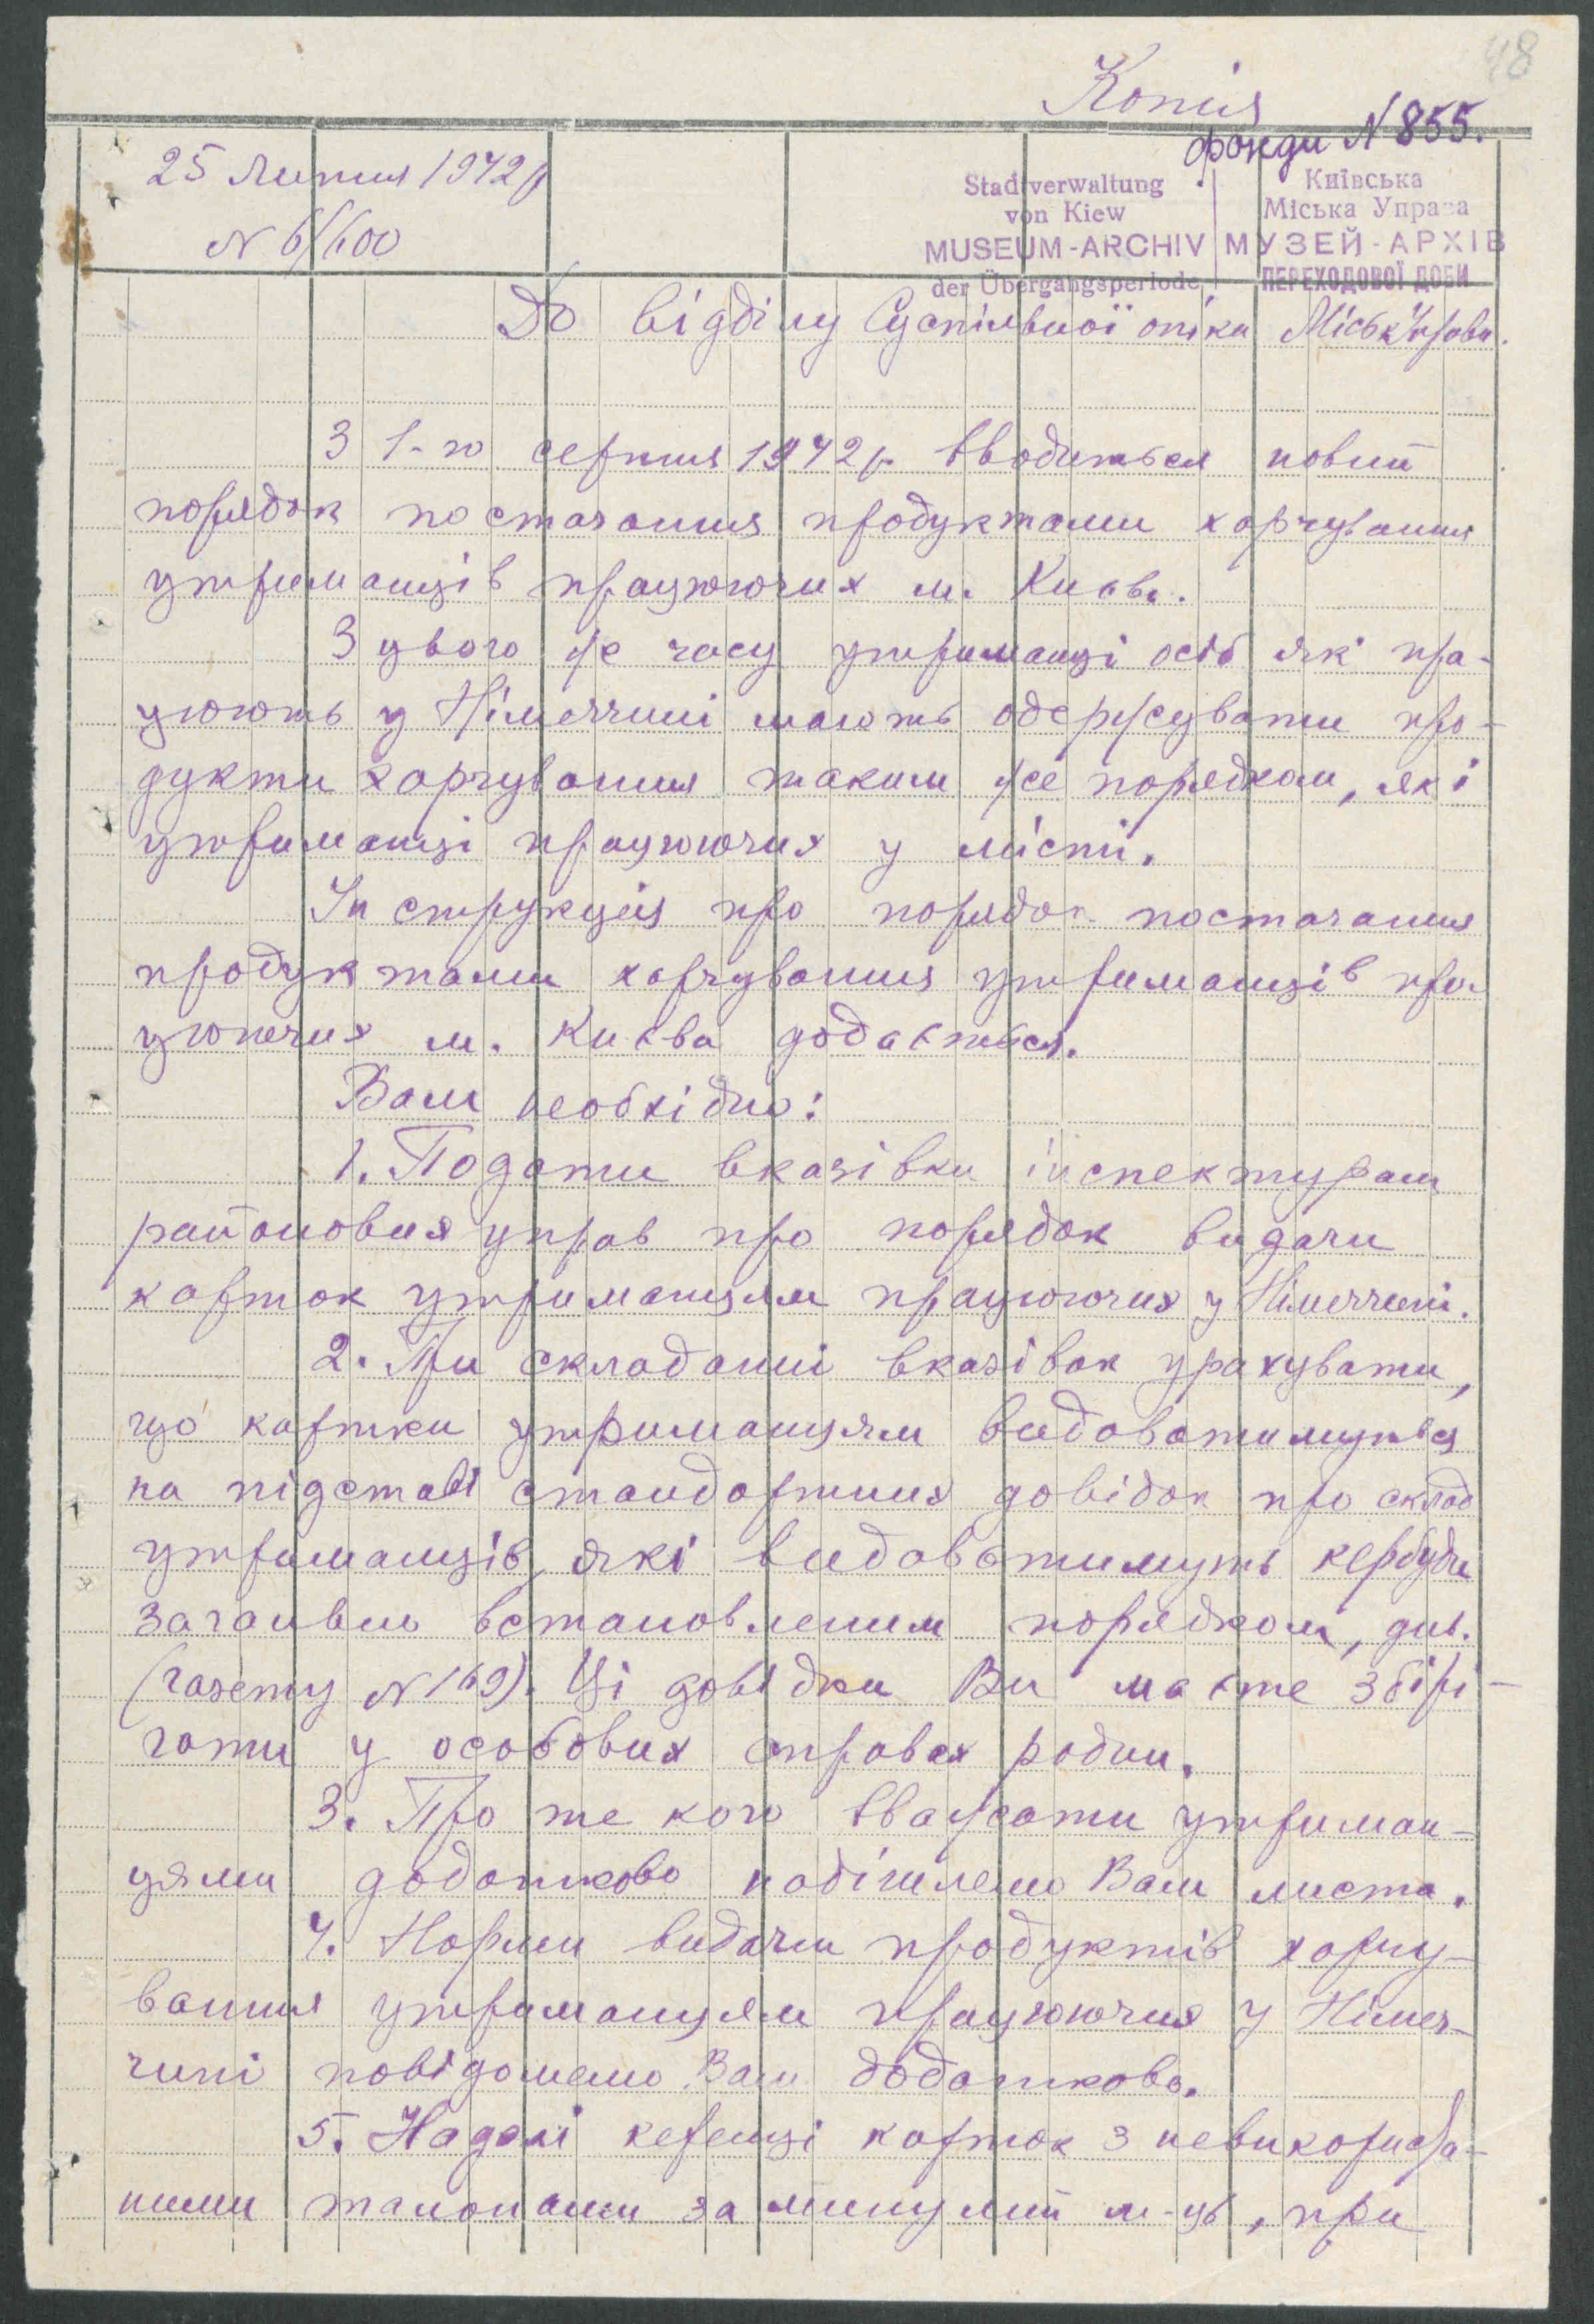 48
Копія
фонди N 855.
25 Липня 1942 р
N 6/600
Stadtverwaltung
von Kiew
MUSEUM-ARCHIV
der Übergangsperiode
Київська
Міська Управа
МУЗЕЙ-АРХІВ
ПЕРЕХОДОВОЇ ДОБИ
До відділу Суспільної опіки Міськ Управи.
З 1-го серпня 1942 р. вводиться новий
порядок постачання продуктами харчування
утриманців працюючих м. Києва.
З цього же часу утриманці осіб які пра-
цюють у Німеччині мають одержувати про-
дукти харчування таким же порядком, як і
утриманці працюючих у місті.
Інструкція про порядок постачання
продуктами харчування утриманців пра-
цюючих м. Києва додається.
Вам необхідно:
1. Подати вказівки інспектурам
районових управ про порядок видачи
карток утриманцям працюючих у Німеччині.
2. При складанні вказівок урахувати,
що картки утриманцям видаватимуться
на підставі стандартних довідок про склад
утриманців, які видаватимуть кербуди
загально встановленим порядком, див.
(газету N 169). Ці довідки Ви маєте збірі-
гати у особових справах родин.
3. Про те кого вважати утриман-
цями додатково надішлемо Вам листа.
4. Норми видачи продуктів харчу-
вання утриманцям працюючих у Німеч-
чині повідомемо Вам додатково.
5. Надалі кегенці карток з невикориста-
ними талонами за минулий м-ць, при